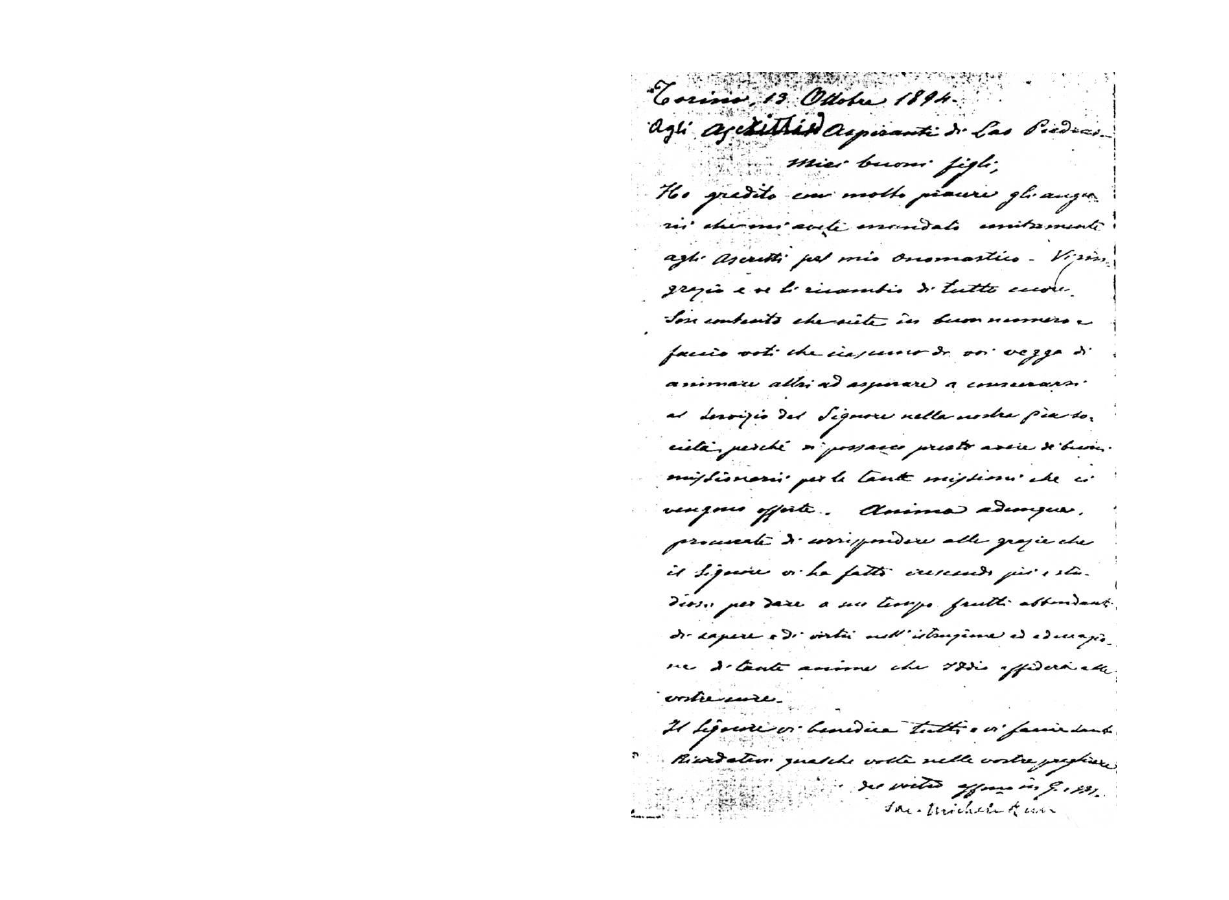 Torino, 13 Ottobre 1894.
Agli Ascritti ed Aspiranti di Las Piedras
Miei buoni figli,
Ho gradito con molto piacere gli augu
rii che mi avete mandato unitamente
agli Ascritti pel mio Onomastico - Vi rin-
grazio e ve li ricambio di tutto cuore.
Son contento che siete in buon numero e
faccio voti che ciascuno di voi vegga di
animare altri ad aspirare a consecrarsi
al servizio del Signore nella nostra Pia So-
cietà, perchè si possano presto avere de' buoni
missionarii per le tante missioni che ci
vengono offerte. Animo adunque,
procurate di corrispondere alle grazie che
il Signore vi ha fatto crescendo pii e stu-
diosi per dare a suo tempo frutti abbondanti
di sapere e di virtù nell'istruzione ed educazio-
ne di tante anime che Iddio affiderà alle
vostre cure.
Il Signore vi benedica tutti e vi faccia santi
Ricordatevi qualche volta nelle vostre preghiere
del vostro affmo in G. e M.
Sac. Michele Rua